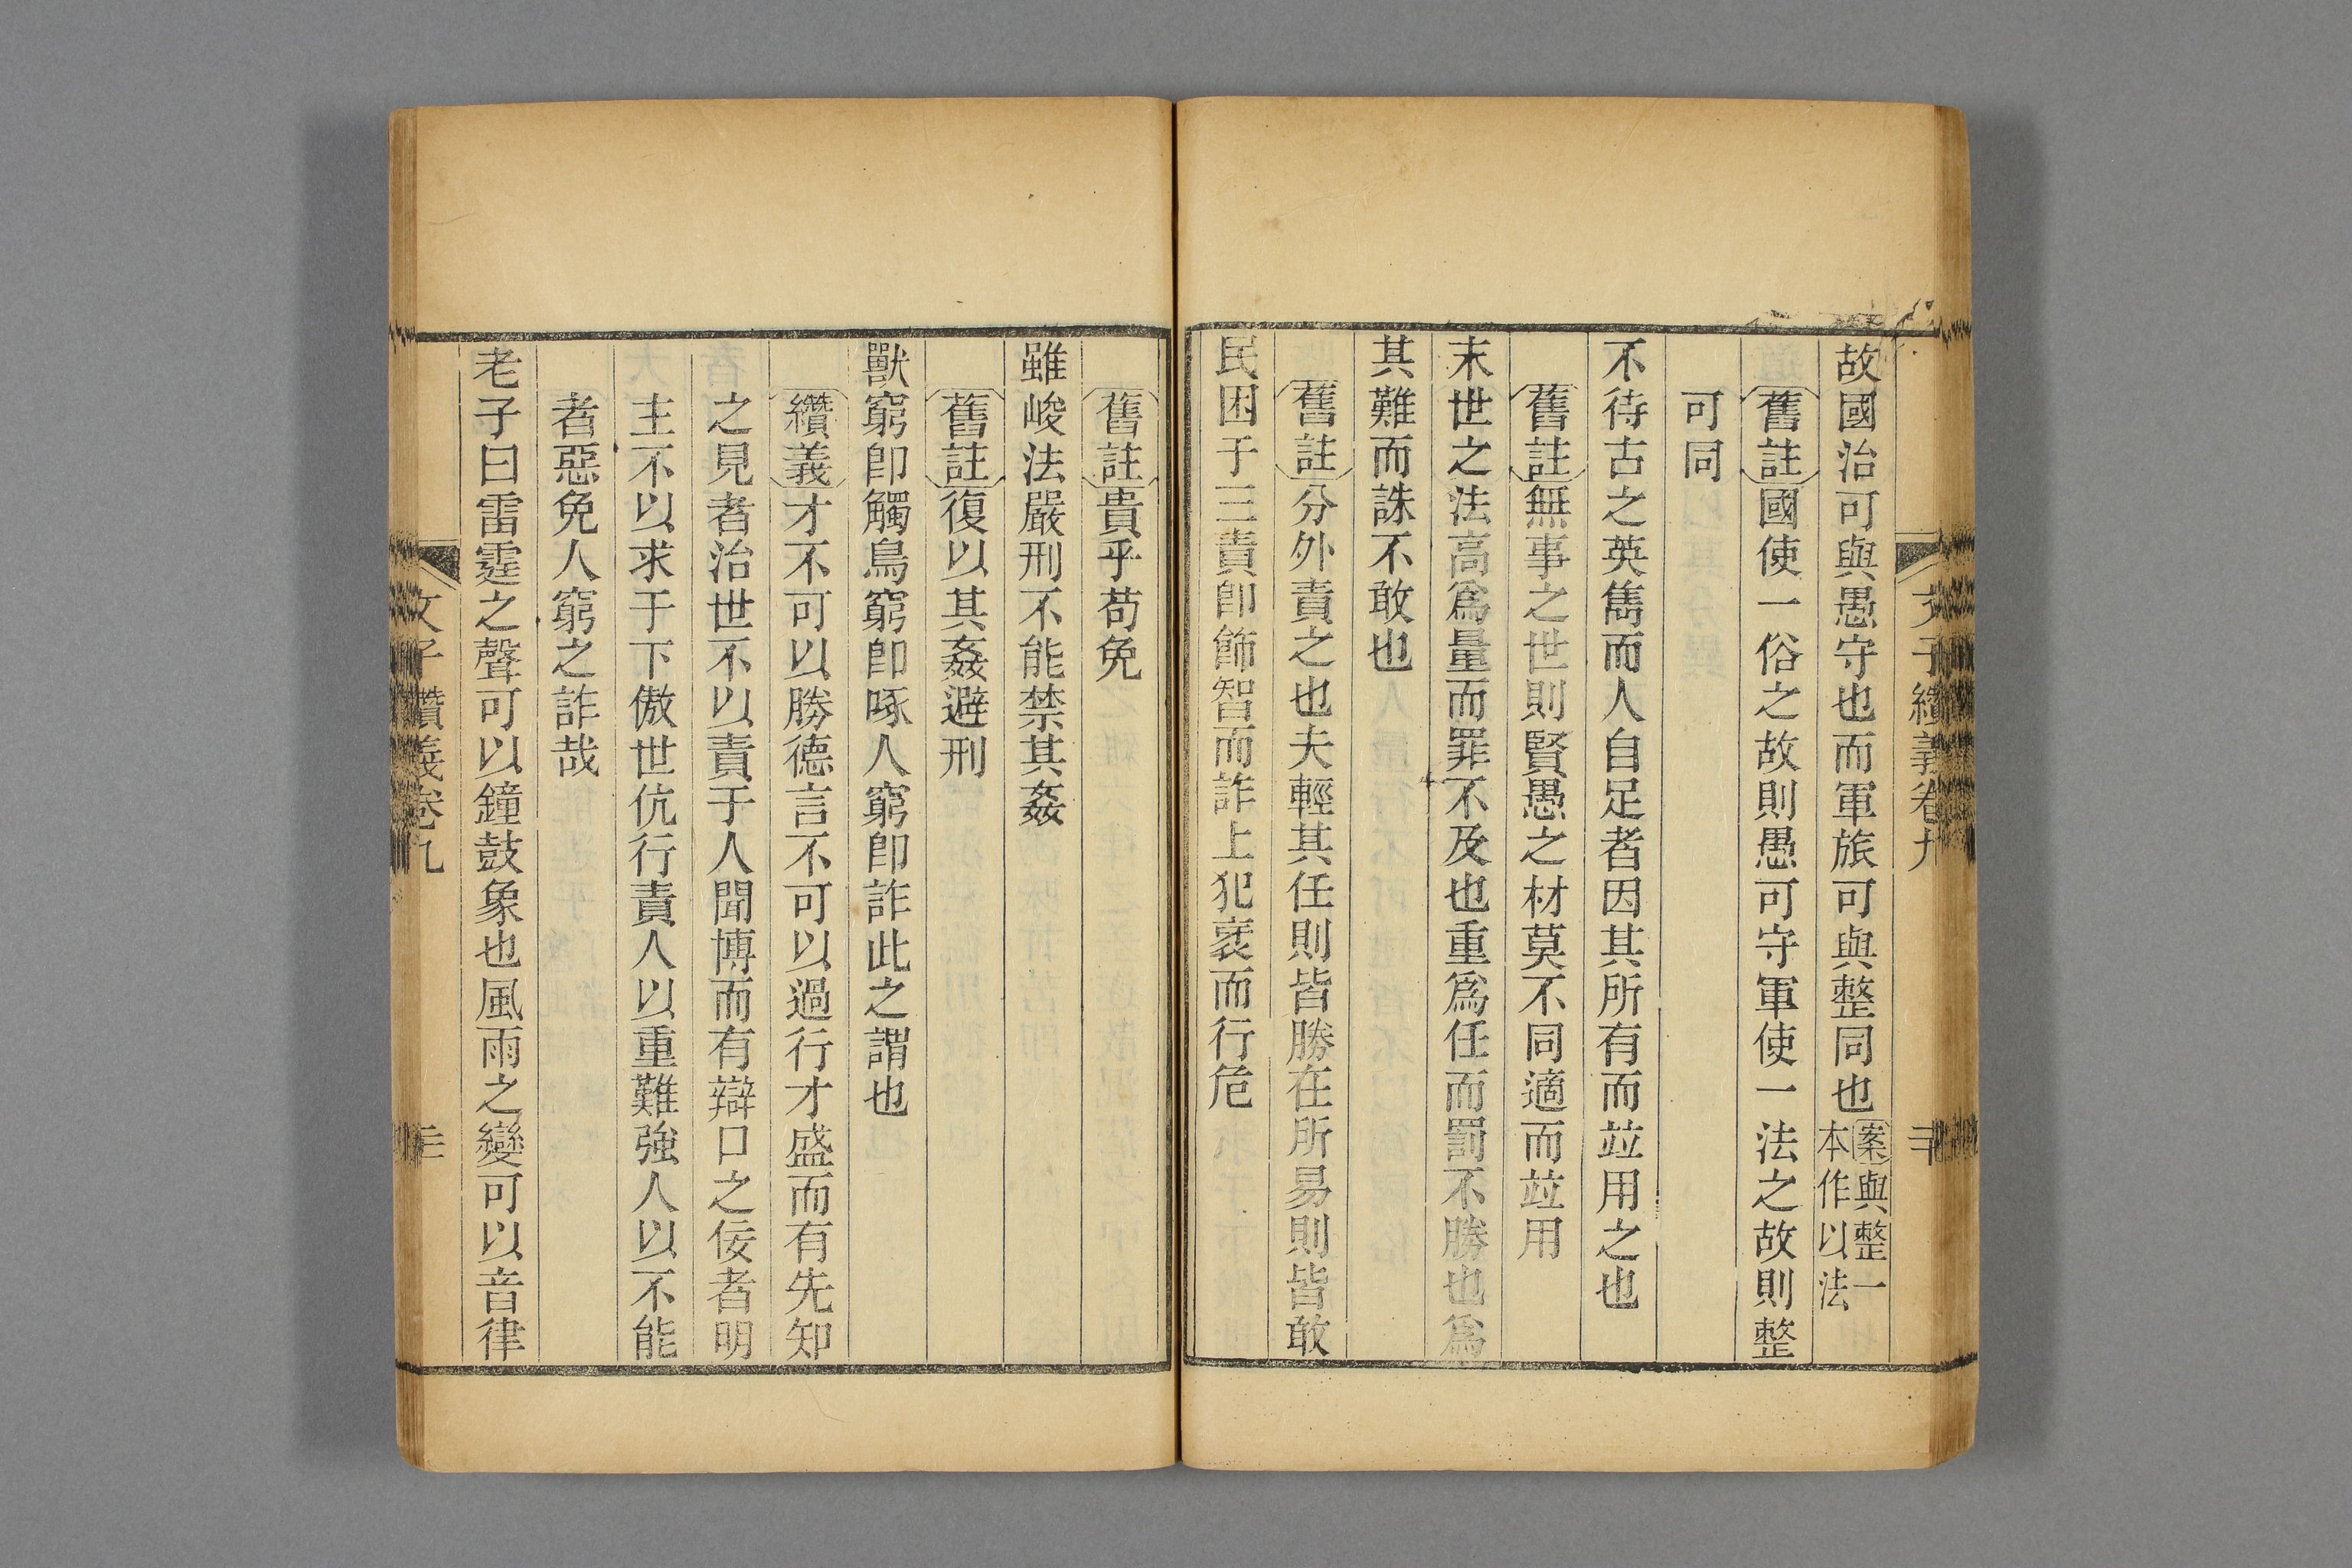 故國治可與愚守也而軍旅可與整同也案與整一本作以法
舊註國使一俗之故則愚可守軍使一法之故則整
可同
不待古之英雋而人自足者因其所有而竝用之也
舊註無事之世則賢愚之材莫不同適而竝用
末世之法高爲量而罪不及也重爲任而罰不勝也爲
其難而誅不敢也
舊註分外責之也夫輕其任則皆勝在所易則皆敢
民困于三責卽飾智而詐上犯衺而行危
舊註貴乎苟免
雖峻法嚴刑不能禁其姦
舊註復以其姦避刑
獸窮卽觸鳥窮卽啄人窮卽詐此之謂也
纘義才不可以勝德言不可以過行才盛而有先知
之見者治世不以責于人聞博而有辯口之佞者明
主不以求于下傲世伉行責人以重難強人以不能
者惡免人窮之詐哉
老子曰雷霆之聲可以鐘鼓象也風雨之變可以音律
文子纘義卷九